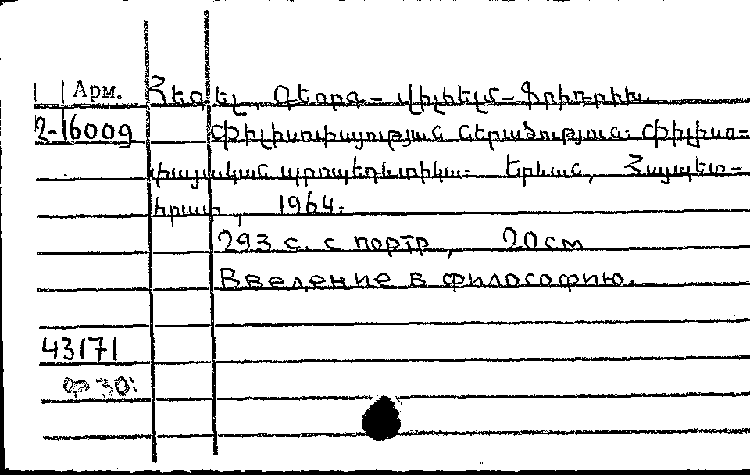 Арм. Հեգել, Գեորգ-Վիլհելմ-Ֆրիդրիխ
2-16009 Փիլիսոփայության ներածություն: Փիլիսո-
փայական պրոպեդևտիկա: Երևան, Հայպետ-
հրատ, 1964.
293 с. с портр, 20 см
Введение в философию.
43171